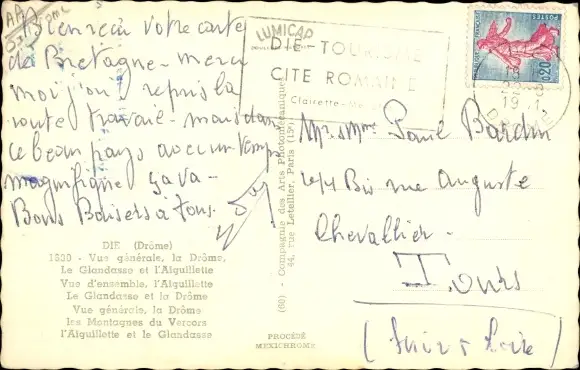 Bien reçu votre carte
de Bretagne - merci
moi j'ai repris la
route travail - mais dans
ce beau pays avec un temps
magnifique ça va -
Bons Baisers à tous.
DIE (Drôme)
1530 - Vue générale, la Drôme,
Le Glandasse et l'Aiguillette
Vue d'ensemble, l'Aiguillette
Le Glandasse et la Drôme
Vue générale, la Drôme
les Montagnes du Vercors
l'Aiguillette et le Glandasse
(60) - Compagnie des Arts Photomécaniques
44, rue Letellier, Paris (15e)
PROCÉDÉ
MEXICHROME
LUMICAP
DIE - TOURISME
CITE ROMAINE
Clairette-
POSTES
0,20
DROME
Mr. & Mme Paul Bardin
Bis rue Auguste
Chevallier -
Tours
(Indre & Loire)